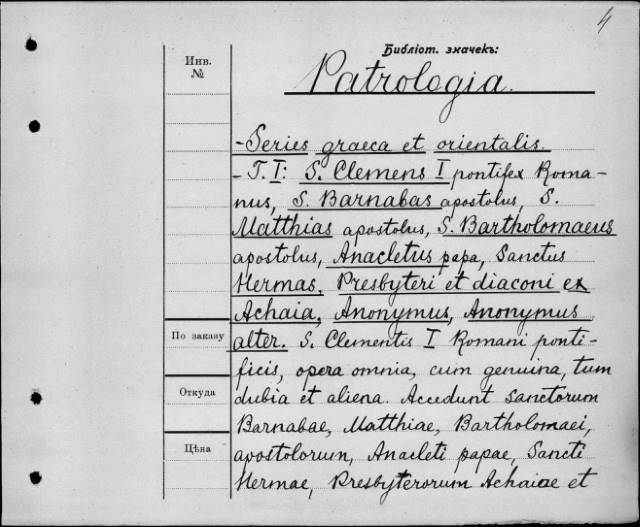 4
Библіот. значекъ:
Инв.
№
Patrologia.
- Series graeca et orientalis.
- T. I: S. Clemens I pontifex Roma-
nus, S. Barnabas apostolus, S.
Matthias apostolus, S. Bartholomaeus
apostolus, Anacletus papa, Sanctus
Hermas, Presbyteri et diaconi ex
Achaia, Anonymus, Anonymus
По заказу
alter. S. Clementis I Romani ponti-
ficis, opera omnia, cum genuina, tum
Откуда
dubia et aliena. Accedunt sanctorum
Barnabae, Matthiae, Bartholomaei,
Цѣна
apostolorum, Anacleti papae, Sancti
Hermae, Presbyterorum Achaiae et